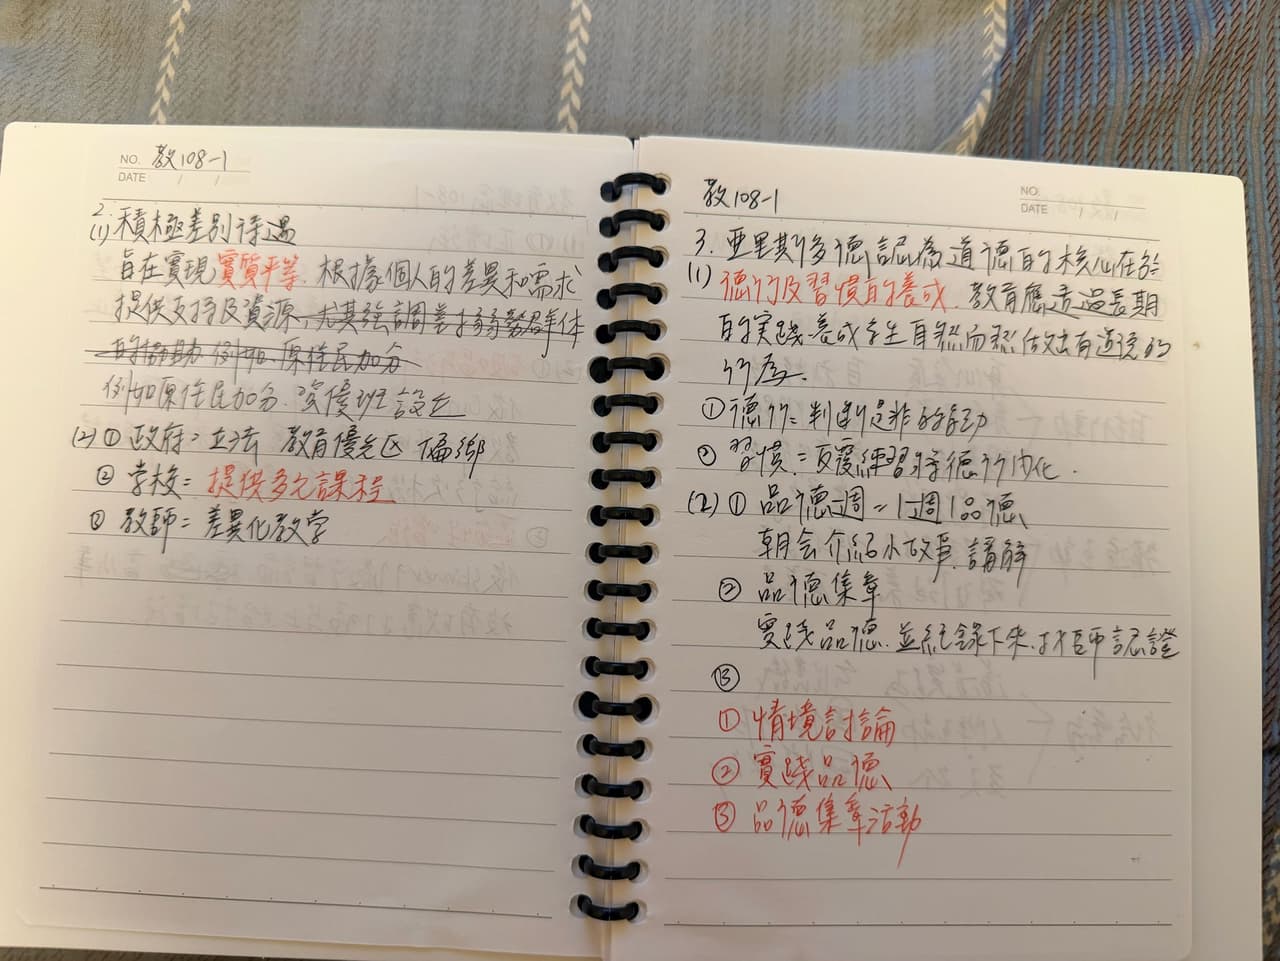 NO. 教108-1
DATE / /
2.
(1) 積極差別待遇
旨在實現實質平等. 根據個人的差異和需求
提供支持及資源, 尤其強調差 弱勢群體
的協助 例如. 原住民加分
例如原住民加分. 資優班設立
(2) ① 政府: 立法 教育優先區 偏鄉
② 學校: 提供多元課程
③ 教師: 差異化教學
教108-1
NO.
DATE / /
3. 亞里斯多德認為道德的核心在於
(1) 德行及習慣的養成. 教育應透過長期
的實踐. 養成學生自然而然做出有道德的
行為.
① 德行: 判斷是非的能力
② 習慣: 反覆練習將德行內化.
(2) ① 品德週: 1週1品德
朝會介紹小故事. 講解
② 品德集章
實踐品德. 並紀錄下來. 找老師認證
③
① 情境討論
② 實踐品德
③ 品德集章活動